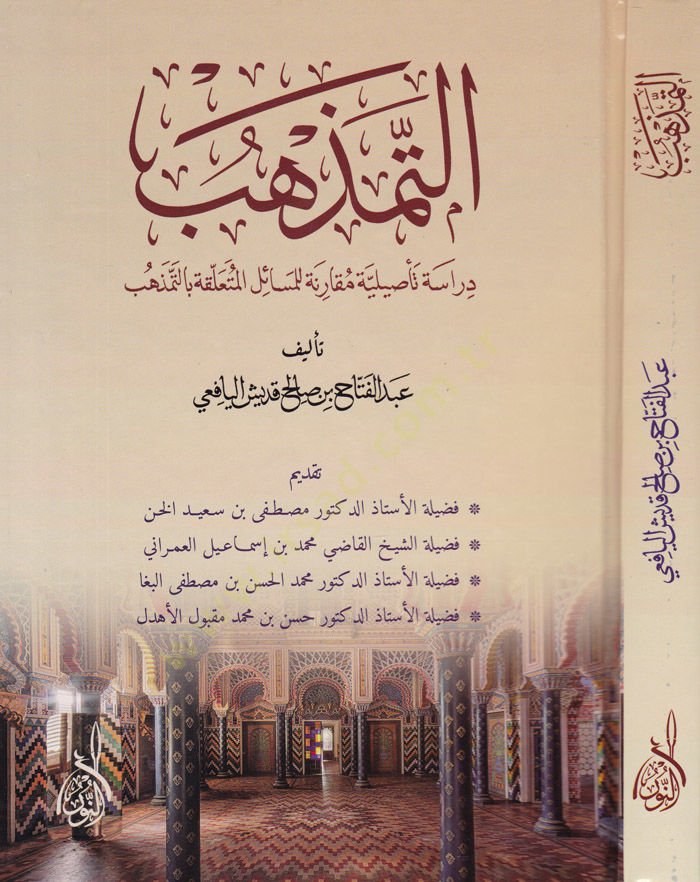 التَّمَذْهُب
دراسة تأصيلية مقارنة للمسائل المتعلقة بالتمذهب
تأليف
عبد الفتاح بن صالح قديش اليافعي
تقديم
* فضيلة الأستاذ الدكتور مصطفى بن سعيد الخن
* فضيلة الشيخ القاضي محمد بن إسماعيل العمراني
* فضيلة الأستاذ الدكتور محمد الحسن بن مصطفى البغا
* فضيلة الأستاذ الدكتور حسن بن محمد مقبول الأهدل
النور
التمذهب
عبد الفتاح بن صالح قديش اليافعي
النور